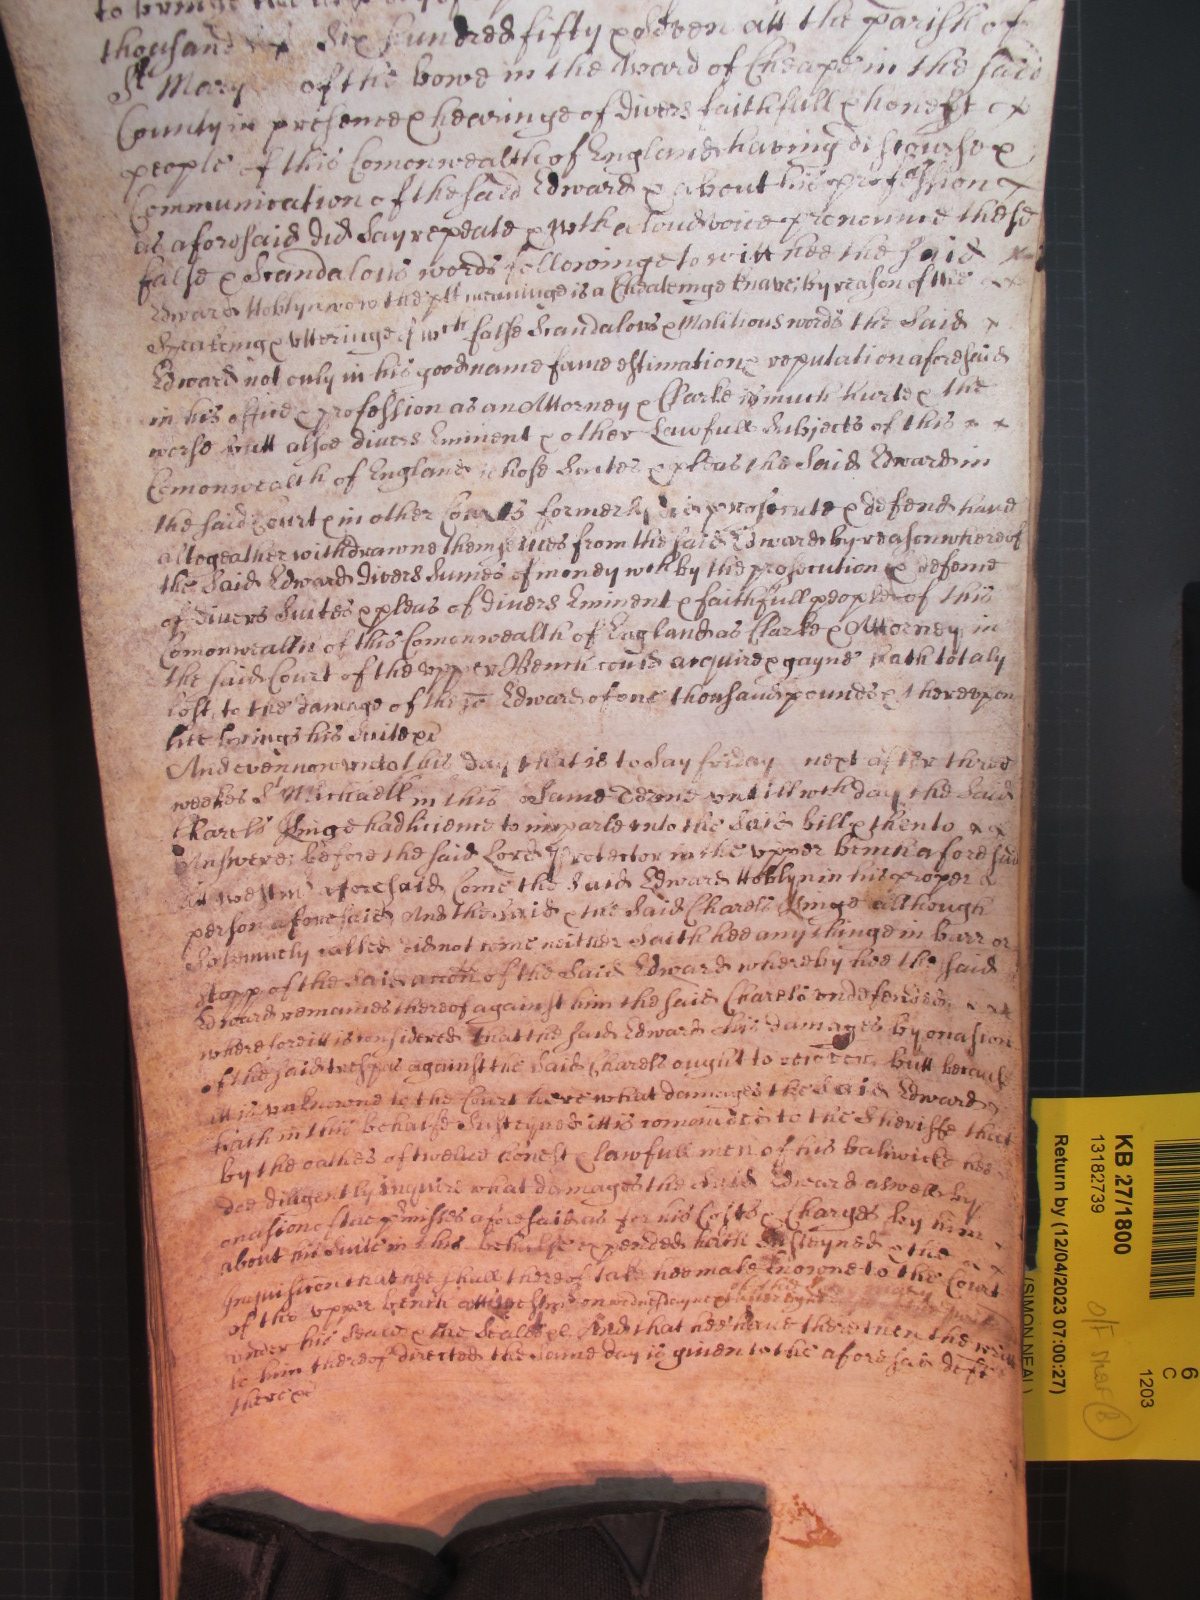 thousand Six hundred fifty & seven att the parish of
St Mary of the bowe in the ward of Cheape in the said
County in presence & hearinge of divers faithfull & honest
people of this Comonwealth of England having discourse &
Communication of the said Edward & about his profession
as aforesaid did say repeate & wth a loud voice pronounce these
false & Scandalous words followinge to witt hee the said
Edward Hoblyn now the plt meaninge is a Cheateinge knave, by reason of the
Speakeing & utteringe of wch false Scandalous & Malitious words the Said
Edward not only in his good name fame estimation & reputation aforesaid
in his office & profession as an Attorney & Clarke is much hurte & the
worse butt alsoe divers Eminent & other Lawfull Subjects of this
Comonwealth of England whose Suites & pleas the said Edward in
the said Court & in other Courts formerly did prosecute & defend have
altogeather withdrawne themselves from the said Edward by reason whereof
the Said Edward divers Sumes of money wch by the prosecution & defence
of divers Suites & pleas of divers Eminent & faithfull people of this
Comonwealth of this Comonwealth of England as Clarke & Attorney in
the said Court of the upper Bench could acquire & gayne hath totaly
lost, to the damage of the sd Edward of one thousand pounds & thereupon
hee brings his Suite &c
And even now unto this day that is to Say friday next after three
weekes St Michaell in this Same Terme untill wch day the Said
Charels Kinge had licence to imparle unto the said bill & then to
Answere; before the said Lord Protector in the upper bench aforesaid
att westmr aforesaid Come the Said Edward Hoblyn in his proper
person aforesaid And the said & the Said Charels Kinge although
Solemnely called did not come neither Saith hee any thinge in barr or
stopp of the said accon of the Said Edward whereby hee the said
Edward remaines thereof against him the said Charels undefended
wherefore itt is considered that the said Edward his damages by occasion
of the said trespas against the Said Charels ought to recover, butt because
itt is unknowne to the Court here what damages the Said Edward
hath in this behalfe Susteyned itt is comanded to the Sheriffe that
by the oathes of twelve honest & lawfull men of his baliwicke hee
doe diligently inquire what damages the said Edward aswell by
occasion of the pmisses aforesaid as for his Costs & Charges by him
about his Suite in this behalfe expended hath Susteyned & the
Inquisition that hee shall thereof take hee make knowne to the Court
of the upper bench att westmr on wednesday next after
under his Seale & the Seales &c. And that hee have there then the writt
to him thereof directed the same day is given to the aforesaid deft
there &c
KB 27/1800
13182739
Return by (12/04/2023 07:00:27)
(SIMON NEAL)
6
C
1203